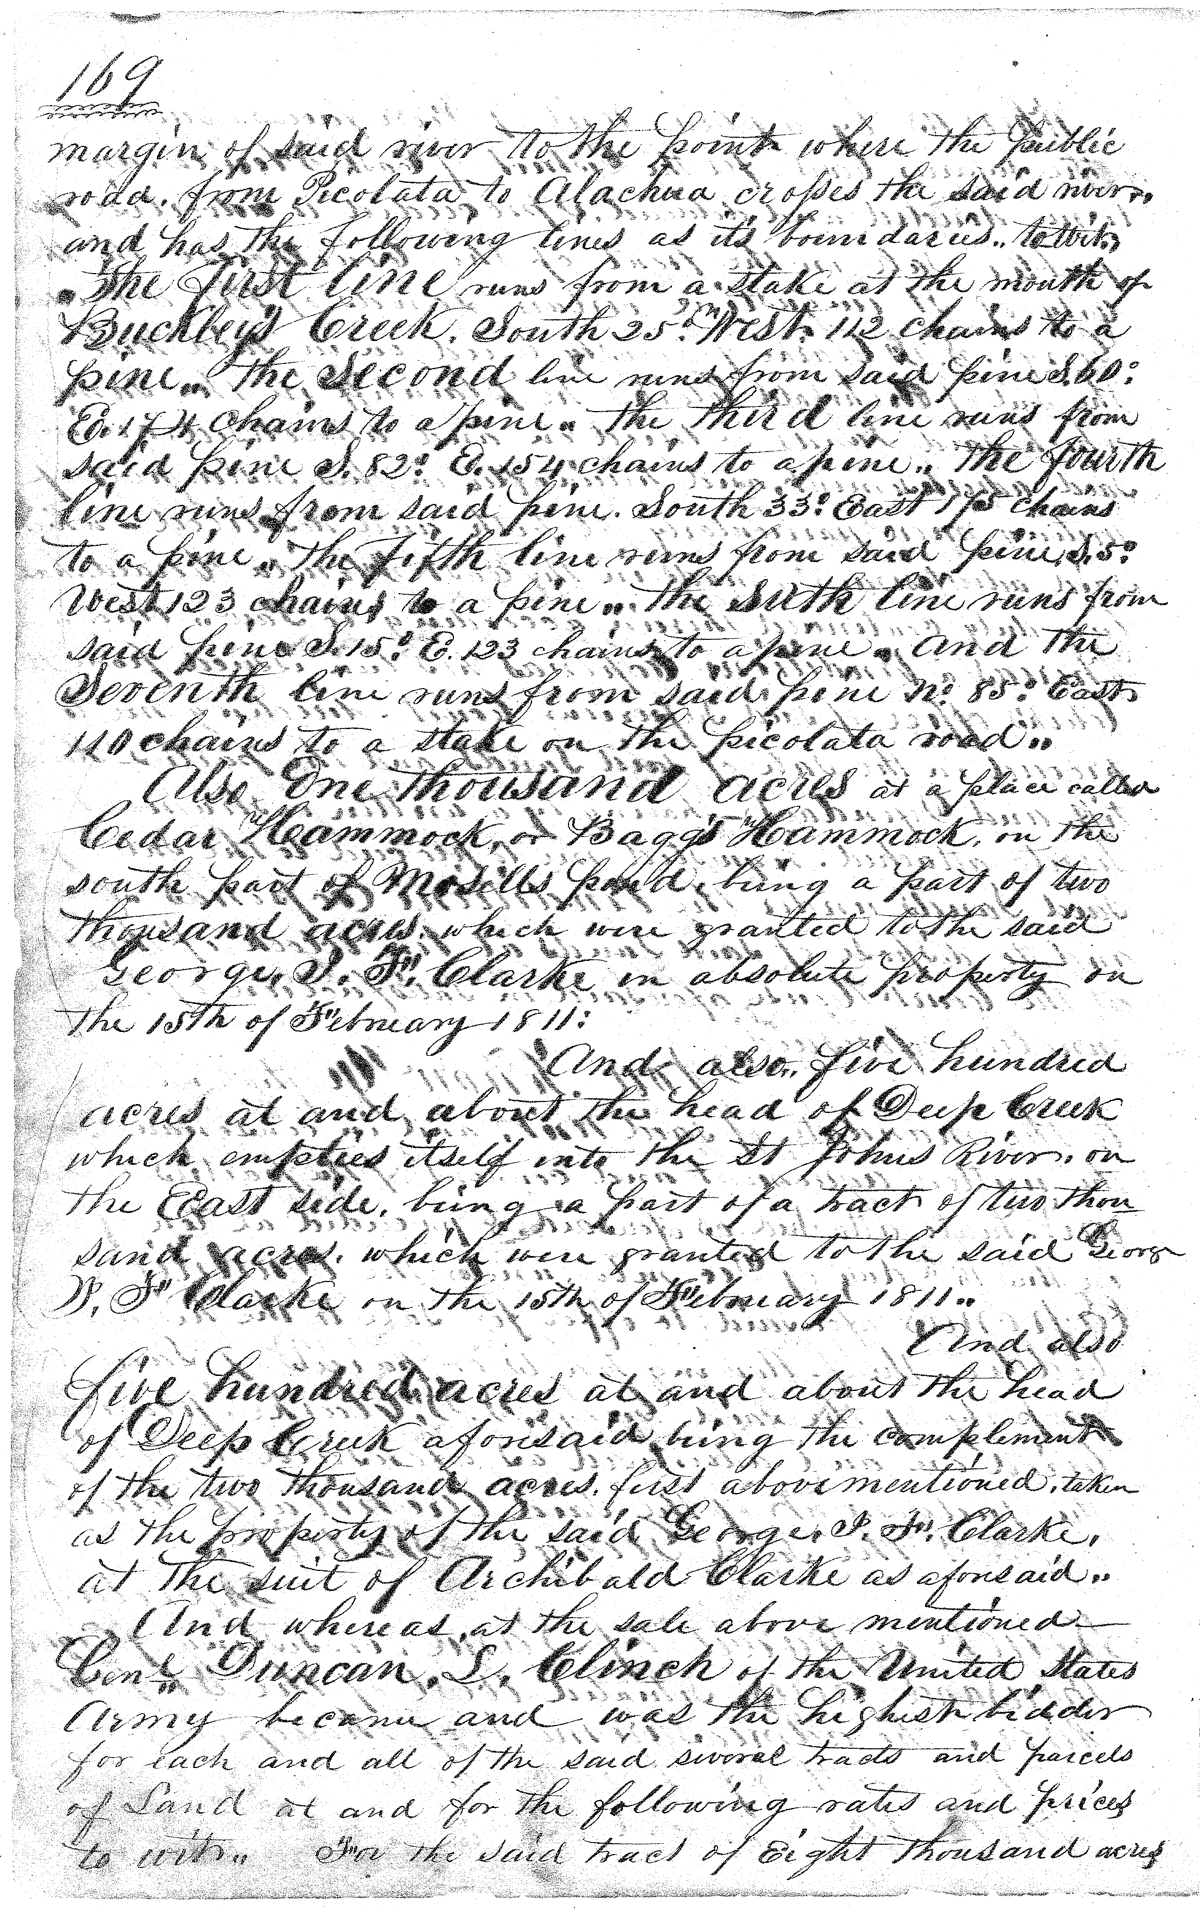 169
margin of said river to the point where the public
road, from Picolata to Alachua crosses the said river,
and has the following lines as its boundaries.. to wit,
The first line runs from a stake at the mouth of
Buckley's Creek, South 25°. West. 112 chains to a
pine.. The Second line runs from said pine S. 60°.
E. 174 chains to a pine.. The third line runs from
said pine S. 82°. E. 154 chains to a pine.. The fourth
line runs from said pine. South 33°. East 175 chains
to a pine.. The fifth line runs from said pine S. 5°.
West 123 chains to a pine.. The Sixth line runs from
said pine S. 15°. E. 123 chains to a pine.. And the
Seventh line runs from said pine No. 85°. East
110 chains to a stake on the picolata road..
Also One thousand acres at a place called
Cedar Hammock, or Bagg's Hammock, on the
south part of Mosells pond, being a part of two
thousand acres, which were granted to the said
George, J. F. Clarke in absolute property on
the 15th of February 1811:
And also.. five hundred
acres at and about the head of Deep Creek
which empties itself into the St Johns River, on
the East side, being a part of a tract of two thou
sand acres, which were granted to the said George
J. F. Clarke on the 15th of February 1811..
And also
five hundred acres at and about the head
of Deep Creek aforesaid, being the complement
of the two thousand acres, first above mentioned, taken
as the property of the said George, J. F. Clarke,
at the suit of Archibald Clarke as aforesaid..
And whereas, at the sale above mentioned
Genl. Duncan, L. Clinch of the United States
Army became and was the highest bidder
for each and all of the said several tracts and parcels
of Land at and for the following rates and prices
to wit.. For the said tract of Eight thousand acres